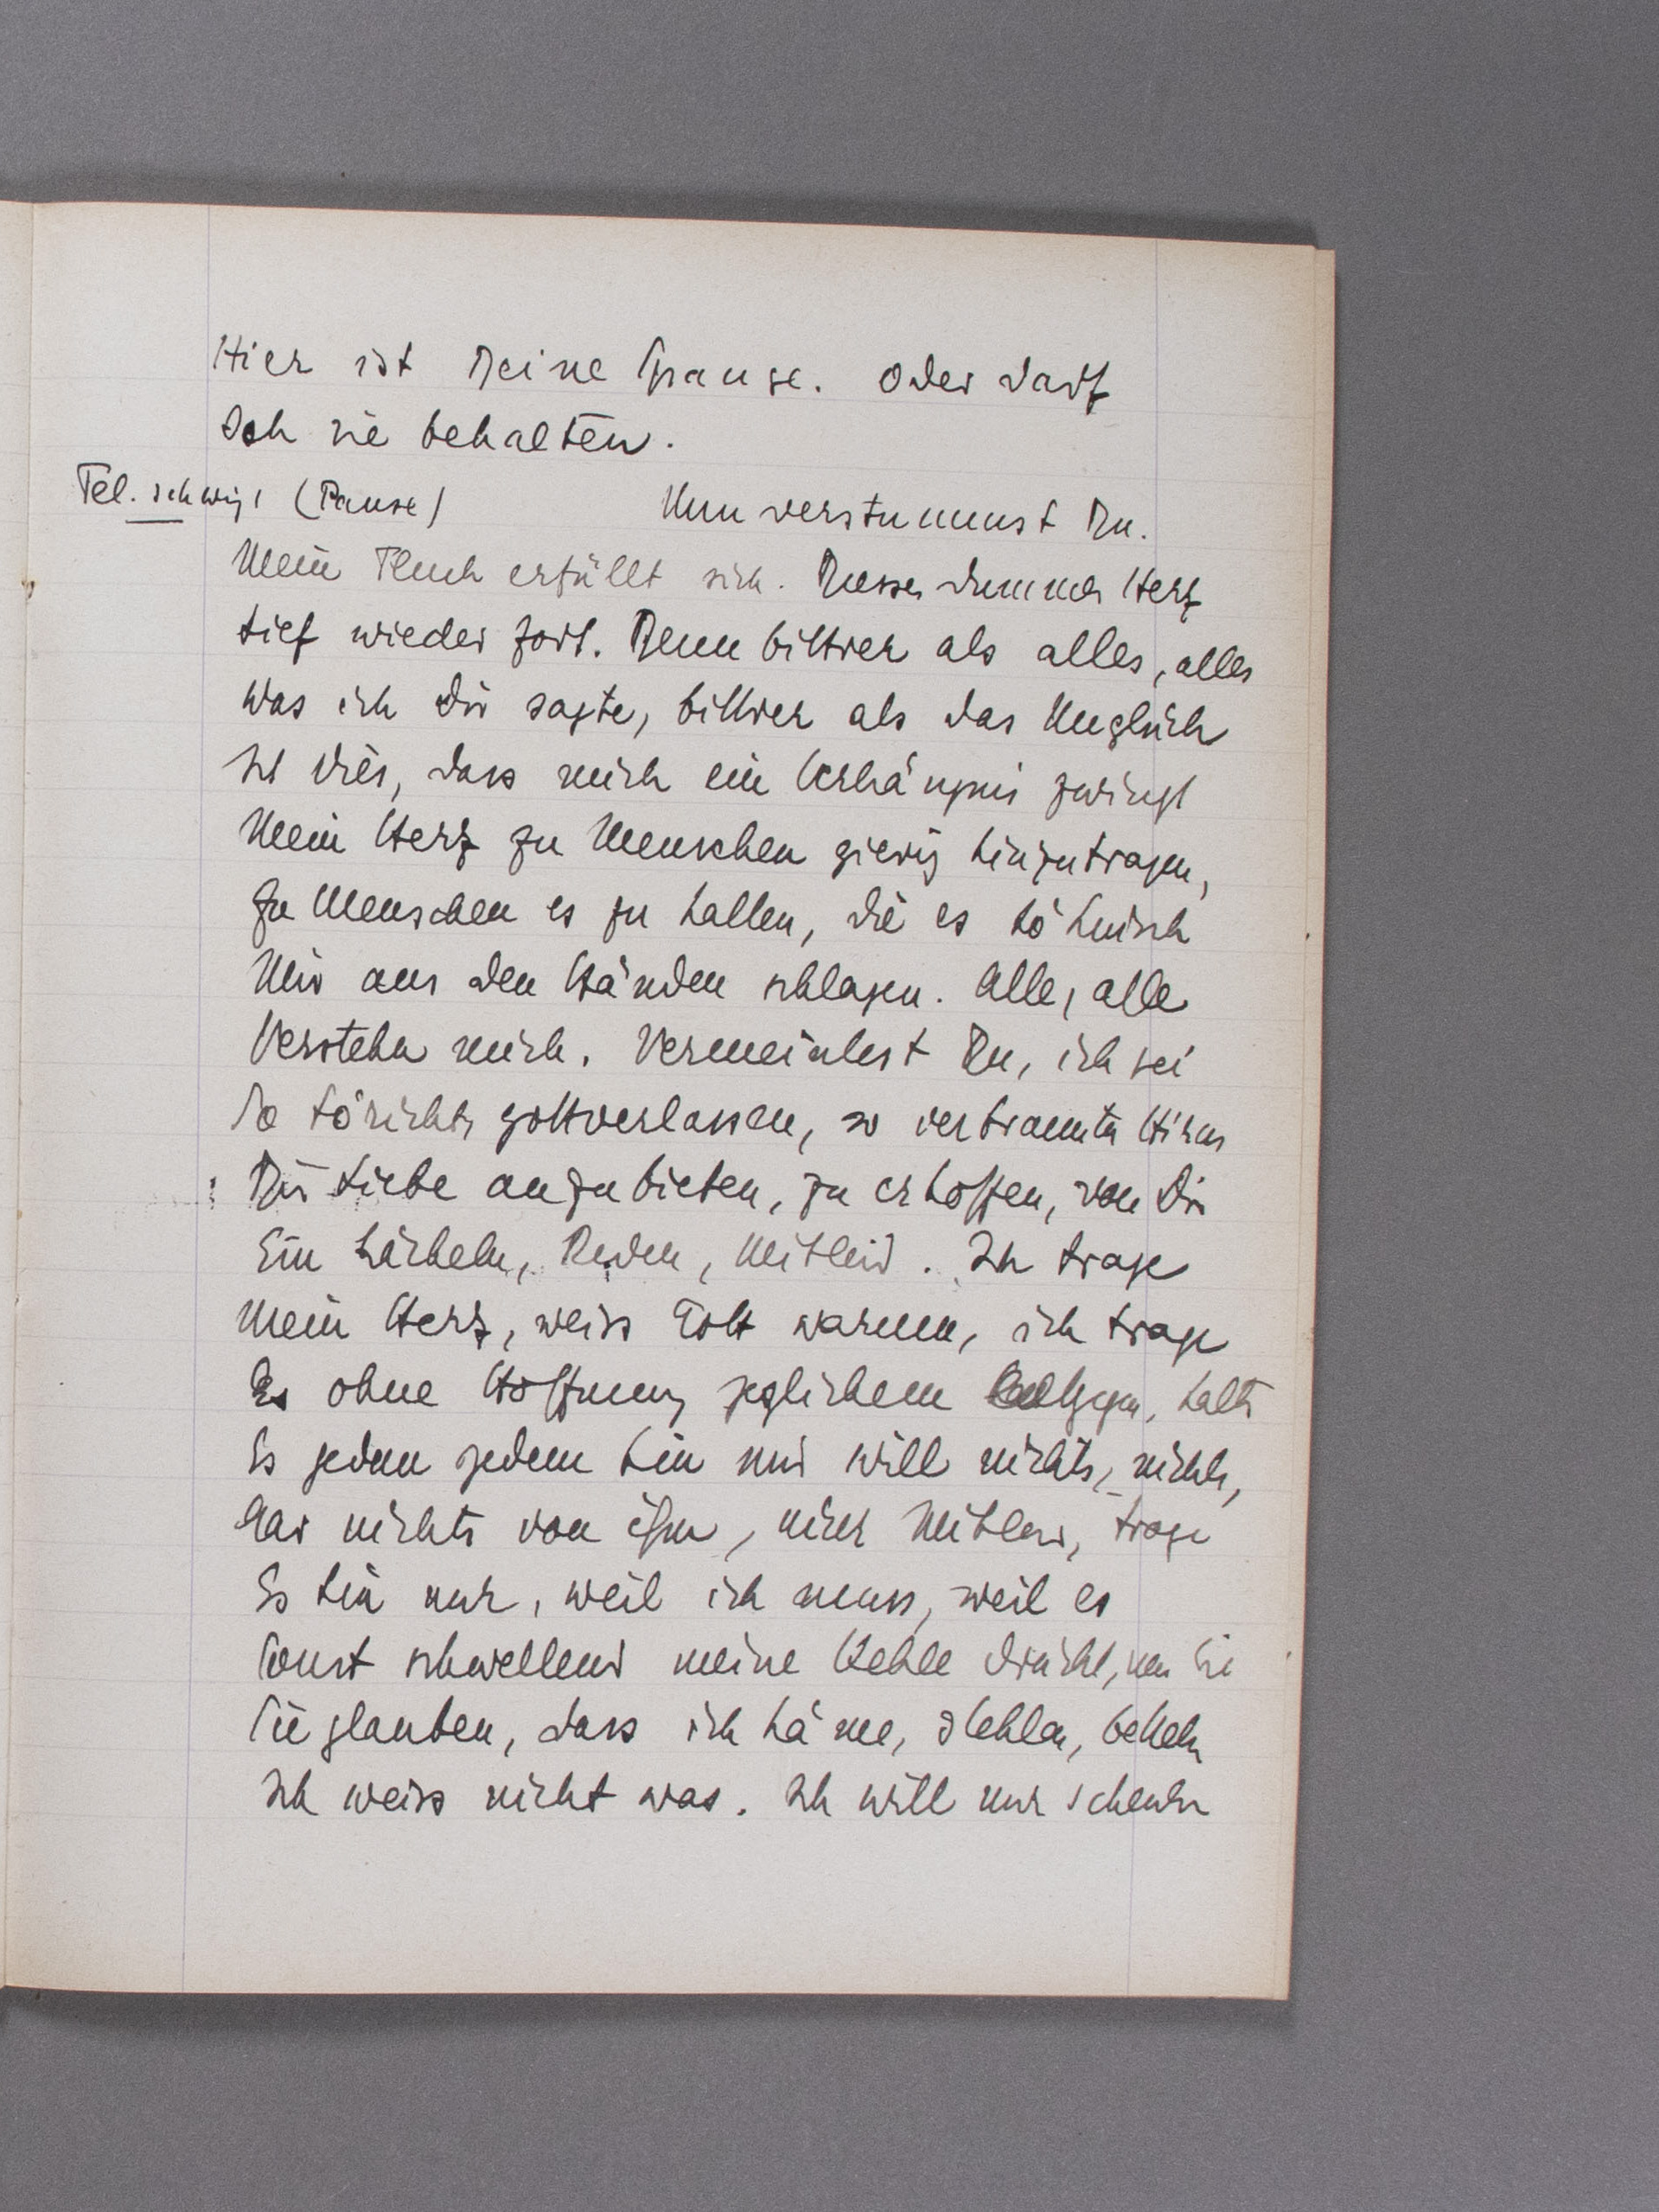 Hier ist Deine Spange. Oder darf
Ich sie behalten.
Tel. schwigt (Pause) Nun verstummst Du.
Mein Fluch erfüllt sich. Dieses dumme Herz
lief wieder fort. Denn bittrer als alles, alles
Was ich dir sagte, bittrer als das Unglück
Ist dies, dass mich ein Verhängnis zwingt
Mein Herz zu Menschen gierig hinzutragen,
Zu Menschen es zu halten, die es höhnisch
Mir aus den Händen schlagen. Alle, alle
Verstehn mich. Vermeintest Du, ich sei
So töricht, gottverlassen, so verbrannten Hirns
Dir Liebe anzubieten, zu erhoffen, von Dir
Ein Lächeln, Reden, Mitleid. Ich trage
Mein Herz, weiss Gott warum, ich trage
Es ohne Hoffnung jeglichem entgegen, halte
Es jedem jedem hin und will nichts, nichts,
Gar nichts von ihm, nicht Mitleid, trage
Es hin nur, weil ich muss, weil es
Sonst schwellend meine Kehle drückt, und Sie
Sie glauben, dass ich käme, stehlen, betteln
Ich weiss nicht was. Ich will nur schenken